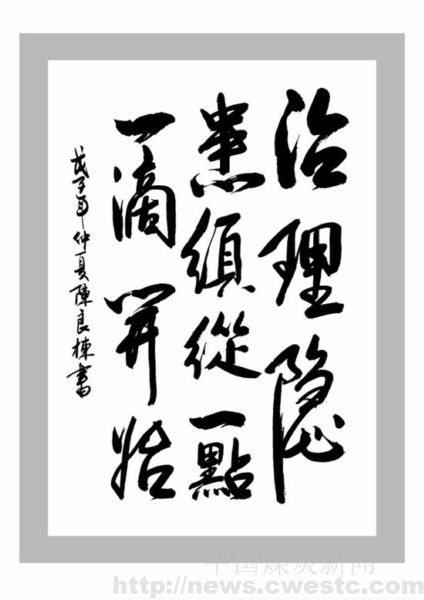 治理隐
患須從一點
一滴開始
戊子年仲夏陳良棟書
中国煤炭新闻
http://news.cwestc.com